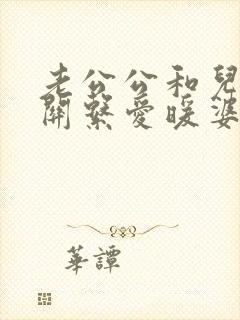 老公公和兒
關繫愛暖婆
華譚